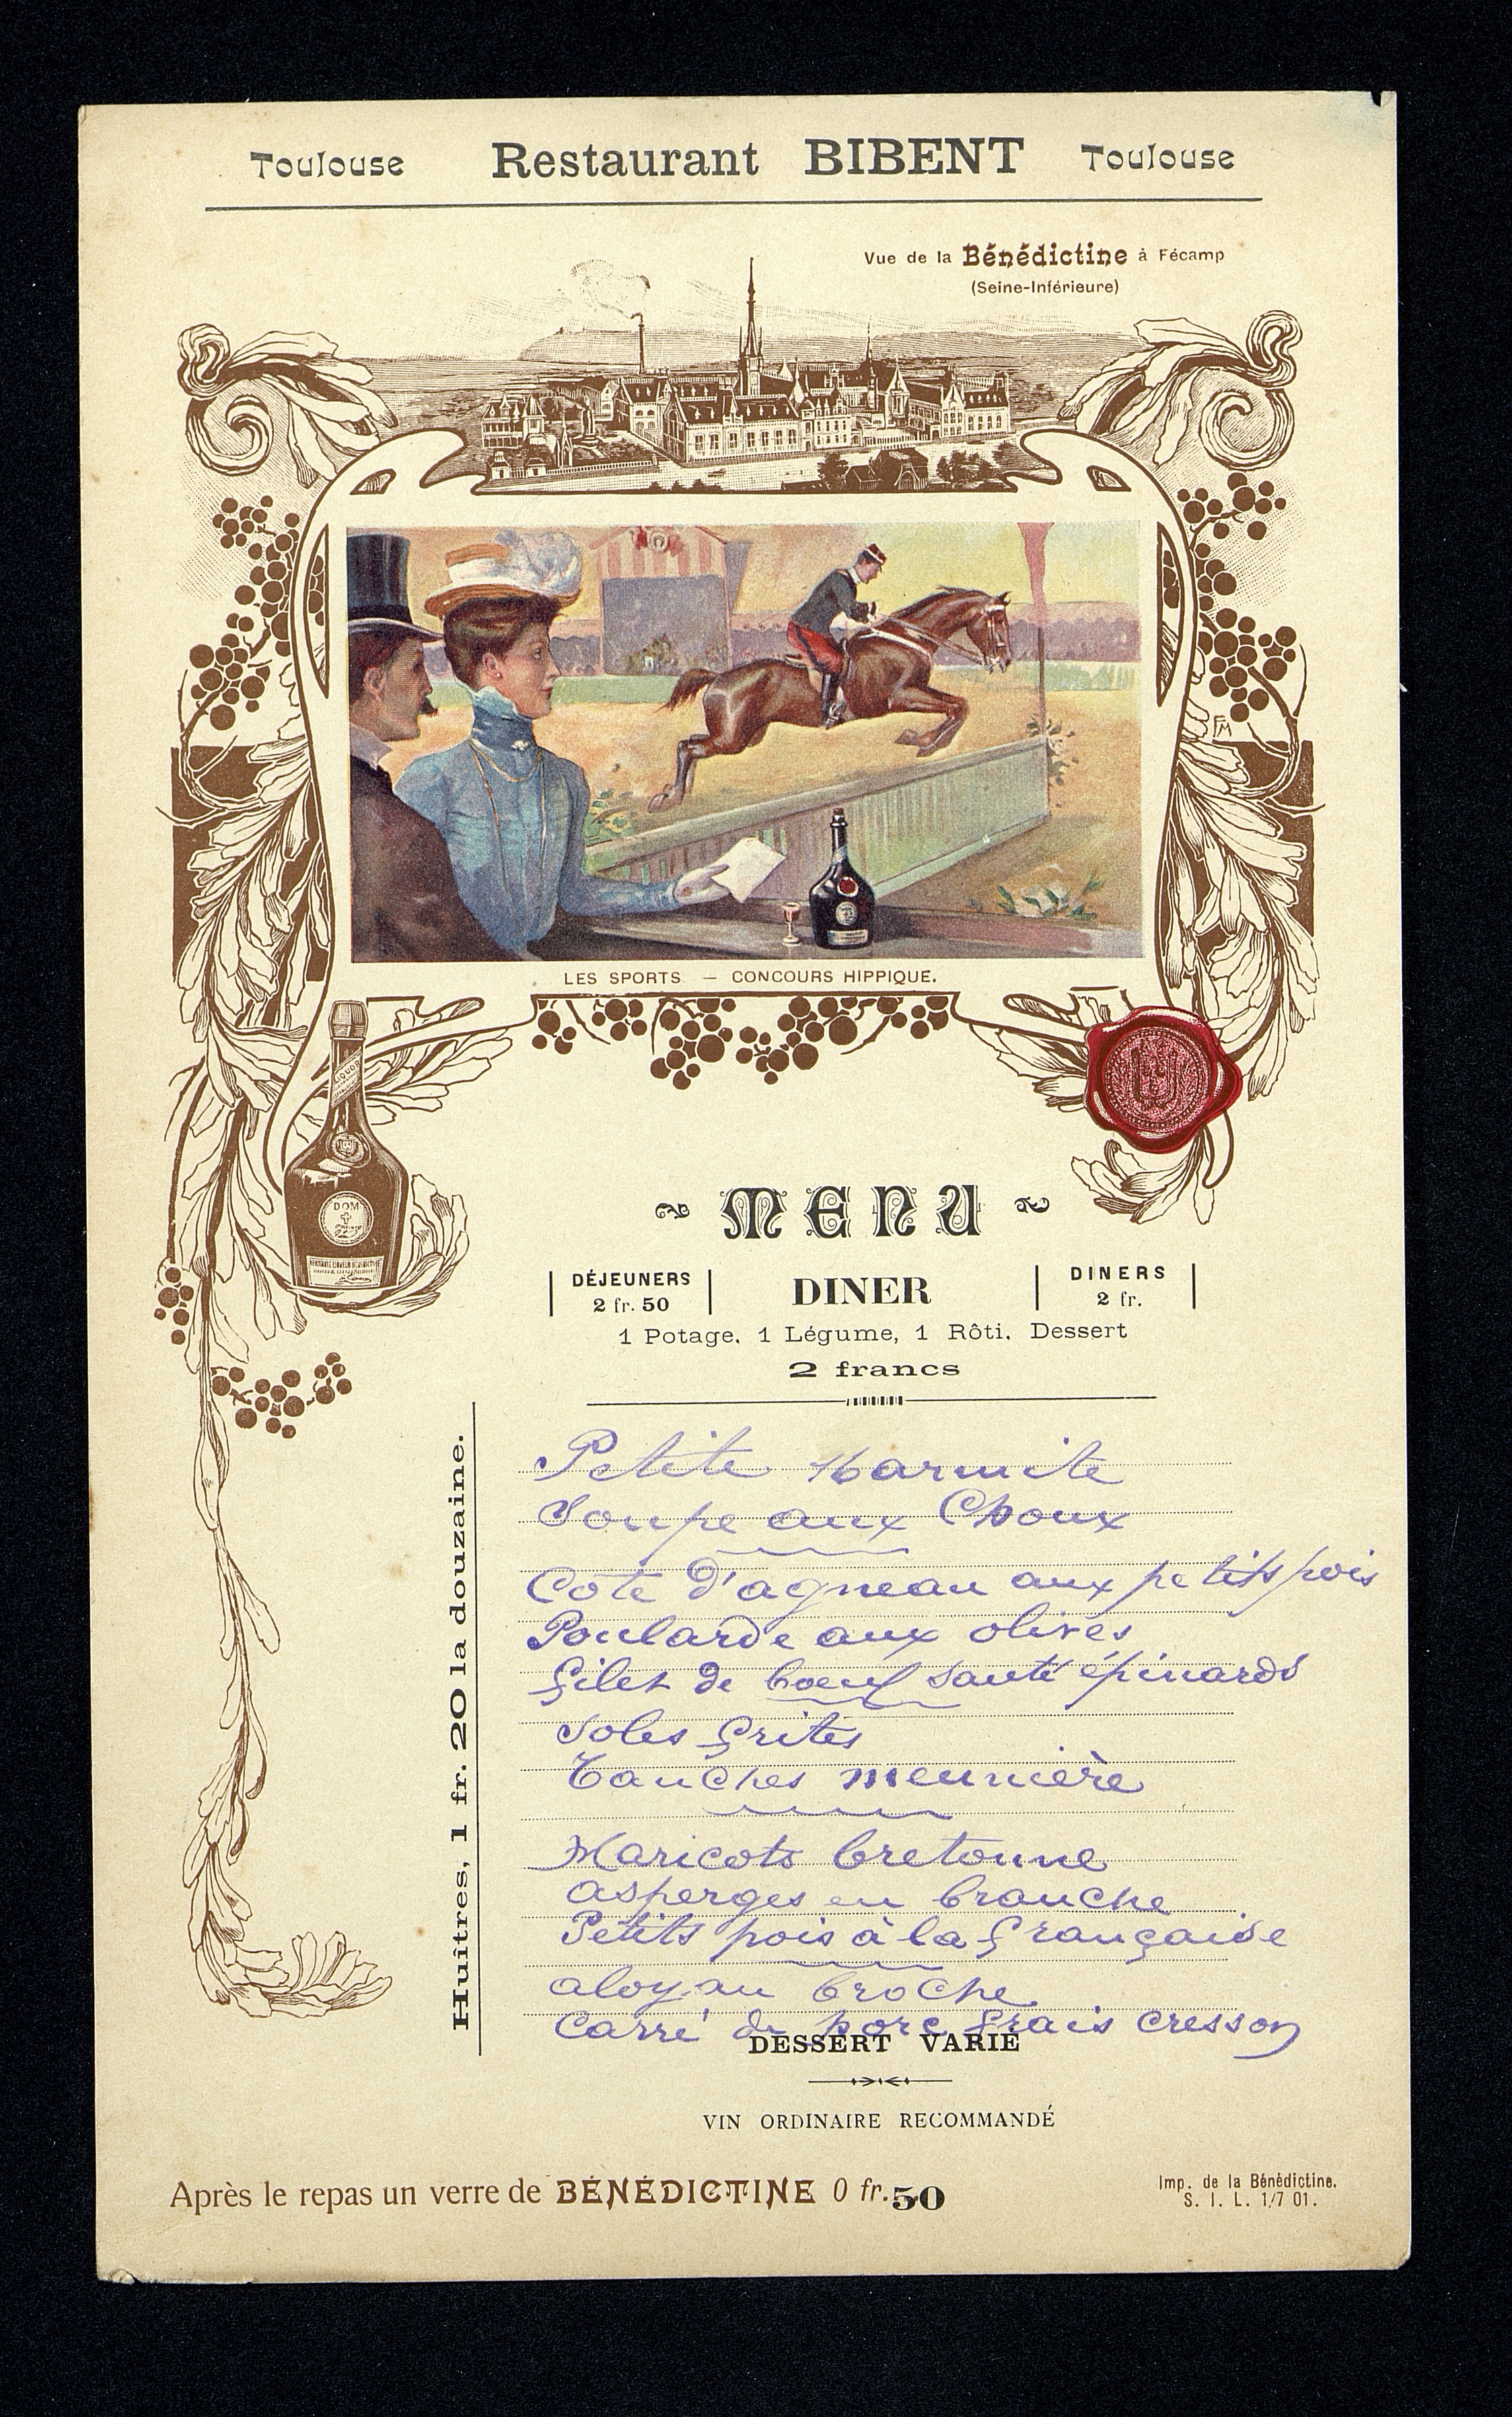 Toulouse Restaurant BIBENT Toulouse
Vue de la Bénédictine à Fécamp
(Seine-Inférieure)
FM
LES SPORTS — CONCOURS HIPPIQUE.
DOM
MENU
DÉJEUNERS
2 fr. 50
DINER
DINERS
2 fr.
1 Potage, 1 Légume, 1 Rôti, Dessert
2 francs
Huîtres, 1 fr. 20 la douzaine.
Petite Marmite
Soupe aux Choux
Cote d'agneau aux petits pois
Poularde aux olives
Filet de boeuf sauté épinards
Soles frites
Tanches meunière
Haricots bretonne
asperges en branche
Petits pois à la française
aloyau broche
Carré de porc frais cresson
DESSERT VARIÉ
VIN ORDINAIRE RECOMMANDÉ
Après le repas un verre de BÉNÉDICTINE 0 fr. 50
Imp. de la Bénédictine.
S. I. L. 1/7 01.